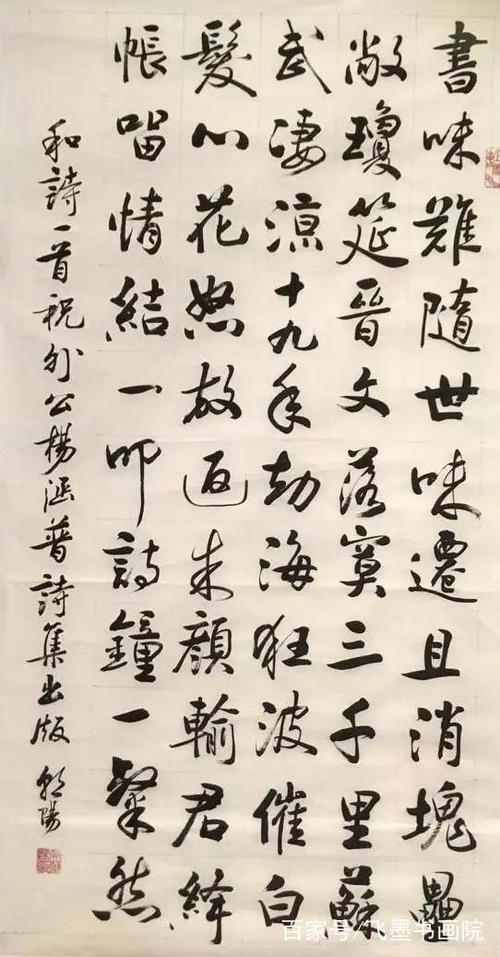 書味難隨世味遷且消塊壘
敞瓊筵晉文落寞三千里蘇
武淒涼十九年劫海狂波催白
髮心花怒放返朱顏輸君絳
帳留情結一叩詩鐘一粲然
和詩一首祝外公楊涵普詩集出版 朝陽
百家号/飞墨书画院